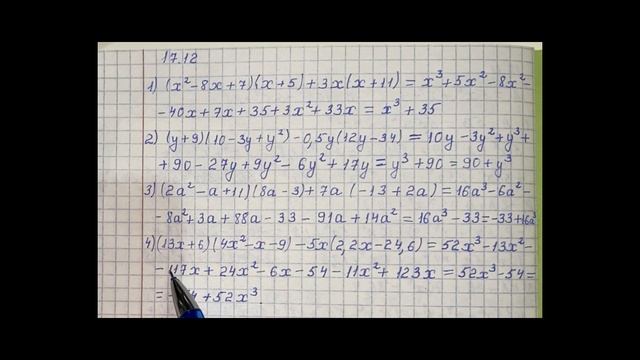 17.12
1) (x²-8x+7)(x+5)+3x(x+11) = x³+5x²-8x²-
-40x+7x+35+3x²+33x = x³+35
2) (y+9)(10-3y+y²)-0,5y(12y-34) = 10y-3y²+y³+
+90-27y+9y²-6y²+17y = y³+90 = 90+y³
3) (2a²-a+11)(8a-3)+7a (-13+2a) = 16a³-6a²-
-8a²+3a+88a-33-91a+14a² = 16a³-33=-33+16a³
4) (13x+6)(4x²-x-9)-5x(2,2x-24,6) = 52x³-13x²-
-117x+24x²-6x-54-11x²+123x = 52x³-54=
= +52x³.